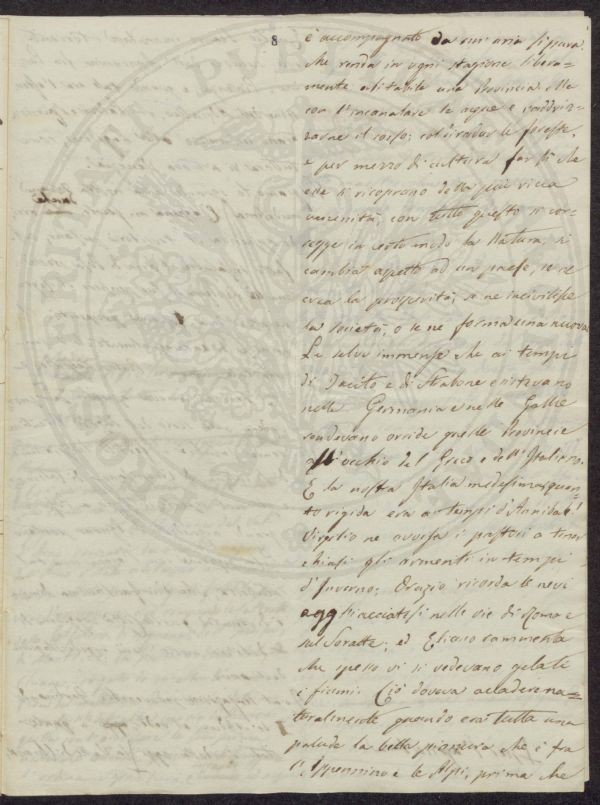 8
è accompagnato da un' aria sì pura
che renda in ogni stagione libera=
mente abitabile una Provincia. Ma
con l'incanalare le acque e raddriz=
zarne il corso; col diradar le foreste,
e per mezzo di cultura far sì che
esse si ricoprono della più ricca
amenità, con tutto questo si cor=
regge in certo modo la Natura, si
cambia aspetto ad un paese, se ne
crea la prosperità, se ne incivilisce
la società, o se ne forma una nuova.
Le selve immense che ai tempi
di Tacito e di Strabone esistevano
nella Germania e nelle Gallie
rendevano orride quelle Provincie
all'occhio del Greco e dell'Italiano.
E la nostra Italia medesima quan=
to rigida era ai tempi d'Annibale!
Virgilio ne avvisa i pastori a tener
chiusi gli armenti in tempi
d'Inverno; Orazio ricorda le nevi
agghiacciatesi nelle vie di Roma e
sul Soratte; ed Eliano rammenta
che spesso vi si vedevano gelati
i fiumi. Ciò doveva accadere na=
turalmente quando era tutta una
palude la bella pianura che è fra
l'Appennino e le Alpi, prima che